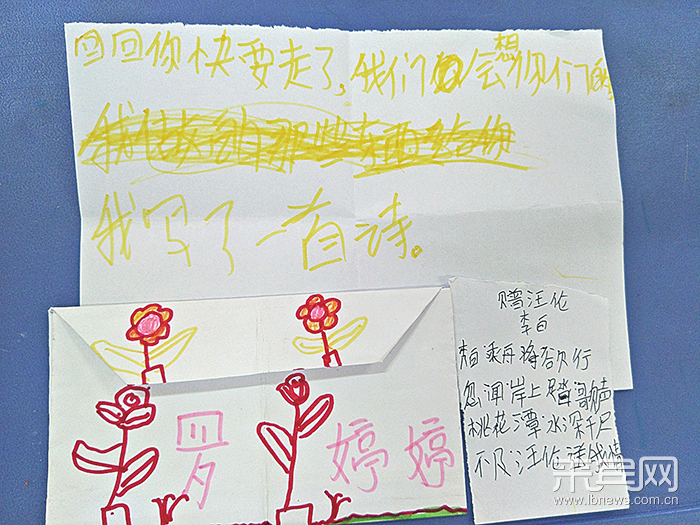 回回你快要走了,我们会想你们的
我写了一首诗。
罗婷婷
赠汪伦
李白
李白乘舟将欲行
忽闻岸上踏歌声
桃花潭水深千尺
不及汪伦送我情
来宾网
www.lbnews.com.cn